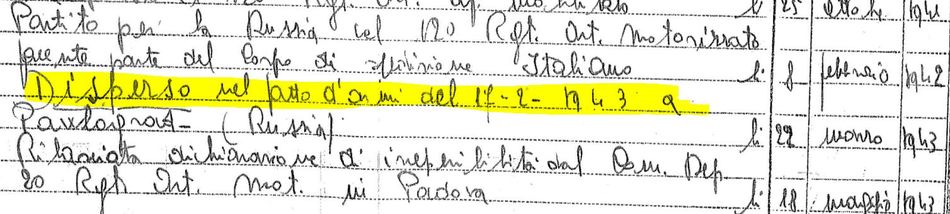 Partito per la Russia col 120 Rgt. Art. Motorizzato li 25 ottobre 1941
facente parte del Corpo di spedizione Italiano li 8 febbraio 1942
Disperso nel fatto d'armi del 17-2-1943 a
Pavlograt - (Russia) li 22 marzo 1943
Rilasciata dichiarazione di irreperibilità dal Com. Dep.
20 Rgt Art. Mot. in Padova li 18 maggio 1943